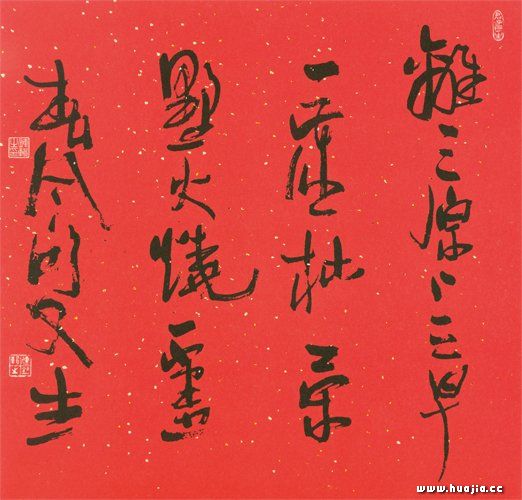 離〻原上草
一歲一枯榮
野火燒不盡
春風吹又生
www.huajia.cc